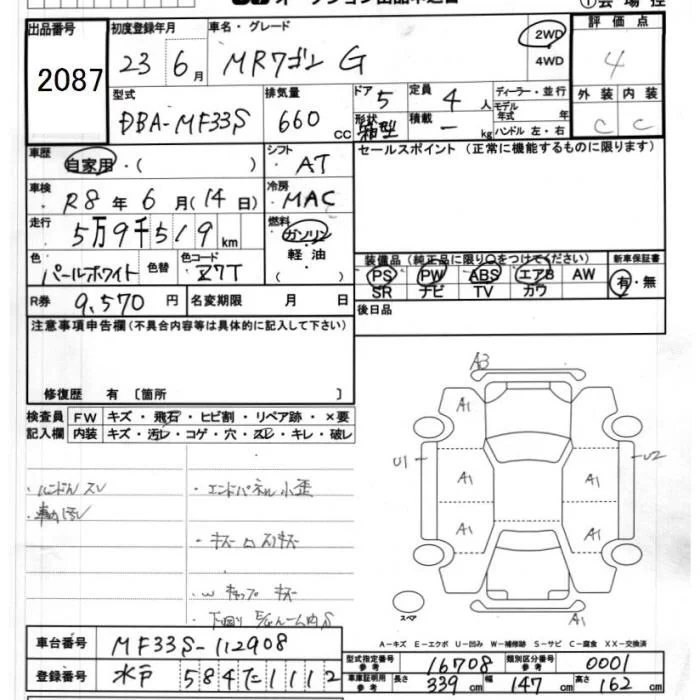 出品番号
2087
初度登録年月
23 6月
車名・グレード
MRワゴン G
2WD
4WD
評価点
4
型式
DBA-MF33S
排気量
660 cc
ドア
5
定員
4 人
ディーラー・並行
モデル
年式 年
ハンドル 左・右
形状
箱型
積載
ー kg
外装 内装
C C
車歴
自家用・( )
シフト
AT
セールスポイント(正常に機能するものに限ります)
車検
R8年 6月(14日)
冷房
MAC
走行
5万9千519 km
燃料
ガソリン
軽油
( )
色
パールホワイト
色替
色コード
Z7T
装備品(純正品に限り○をつけてください)
新車保証書
PS PW ABS エアB AW
SR ナビ TV カワ
有・無
R券
9,570円
名変期限 月 日
後日品
注意事項申告欄(不具合内容等は具体的に記入して下さい)
修復歴 有〔箇所 〕
検査員 FW キズ・飛石・ヒビ割・リペア跡・×要
記入欄 内装 キズ・汚レ・コゲ・穴・スレ・キレ・破レ
・ハンドルスレ
・エンドパネル小歪
A3
A1
U1
U2
A1
A1
A1
A1
A1
スペア
A1
車台番号
MF33S-112908
登録番号
水戸 584 た 1112
A-キズ E-エクボ U-凹み W-補修跡 S-サビ C-腐食 XX-交換済
型式指定番号
参考
16708
類別区分番号
参考
0001
車庫証明用
参考
長さ 339 cm 幅 147 cm 高さ 162 cm